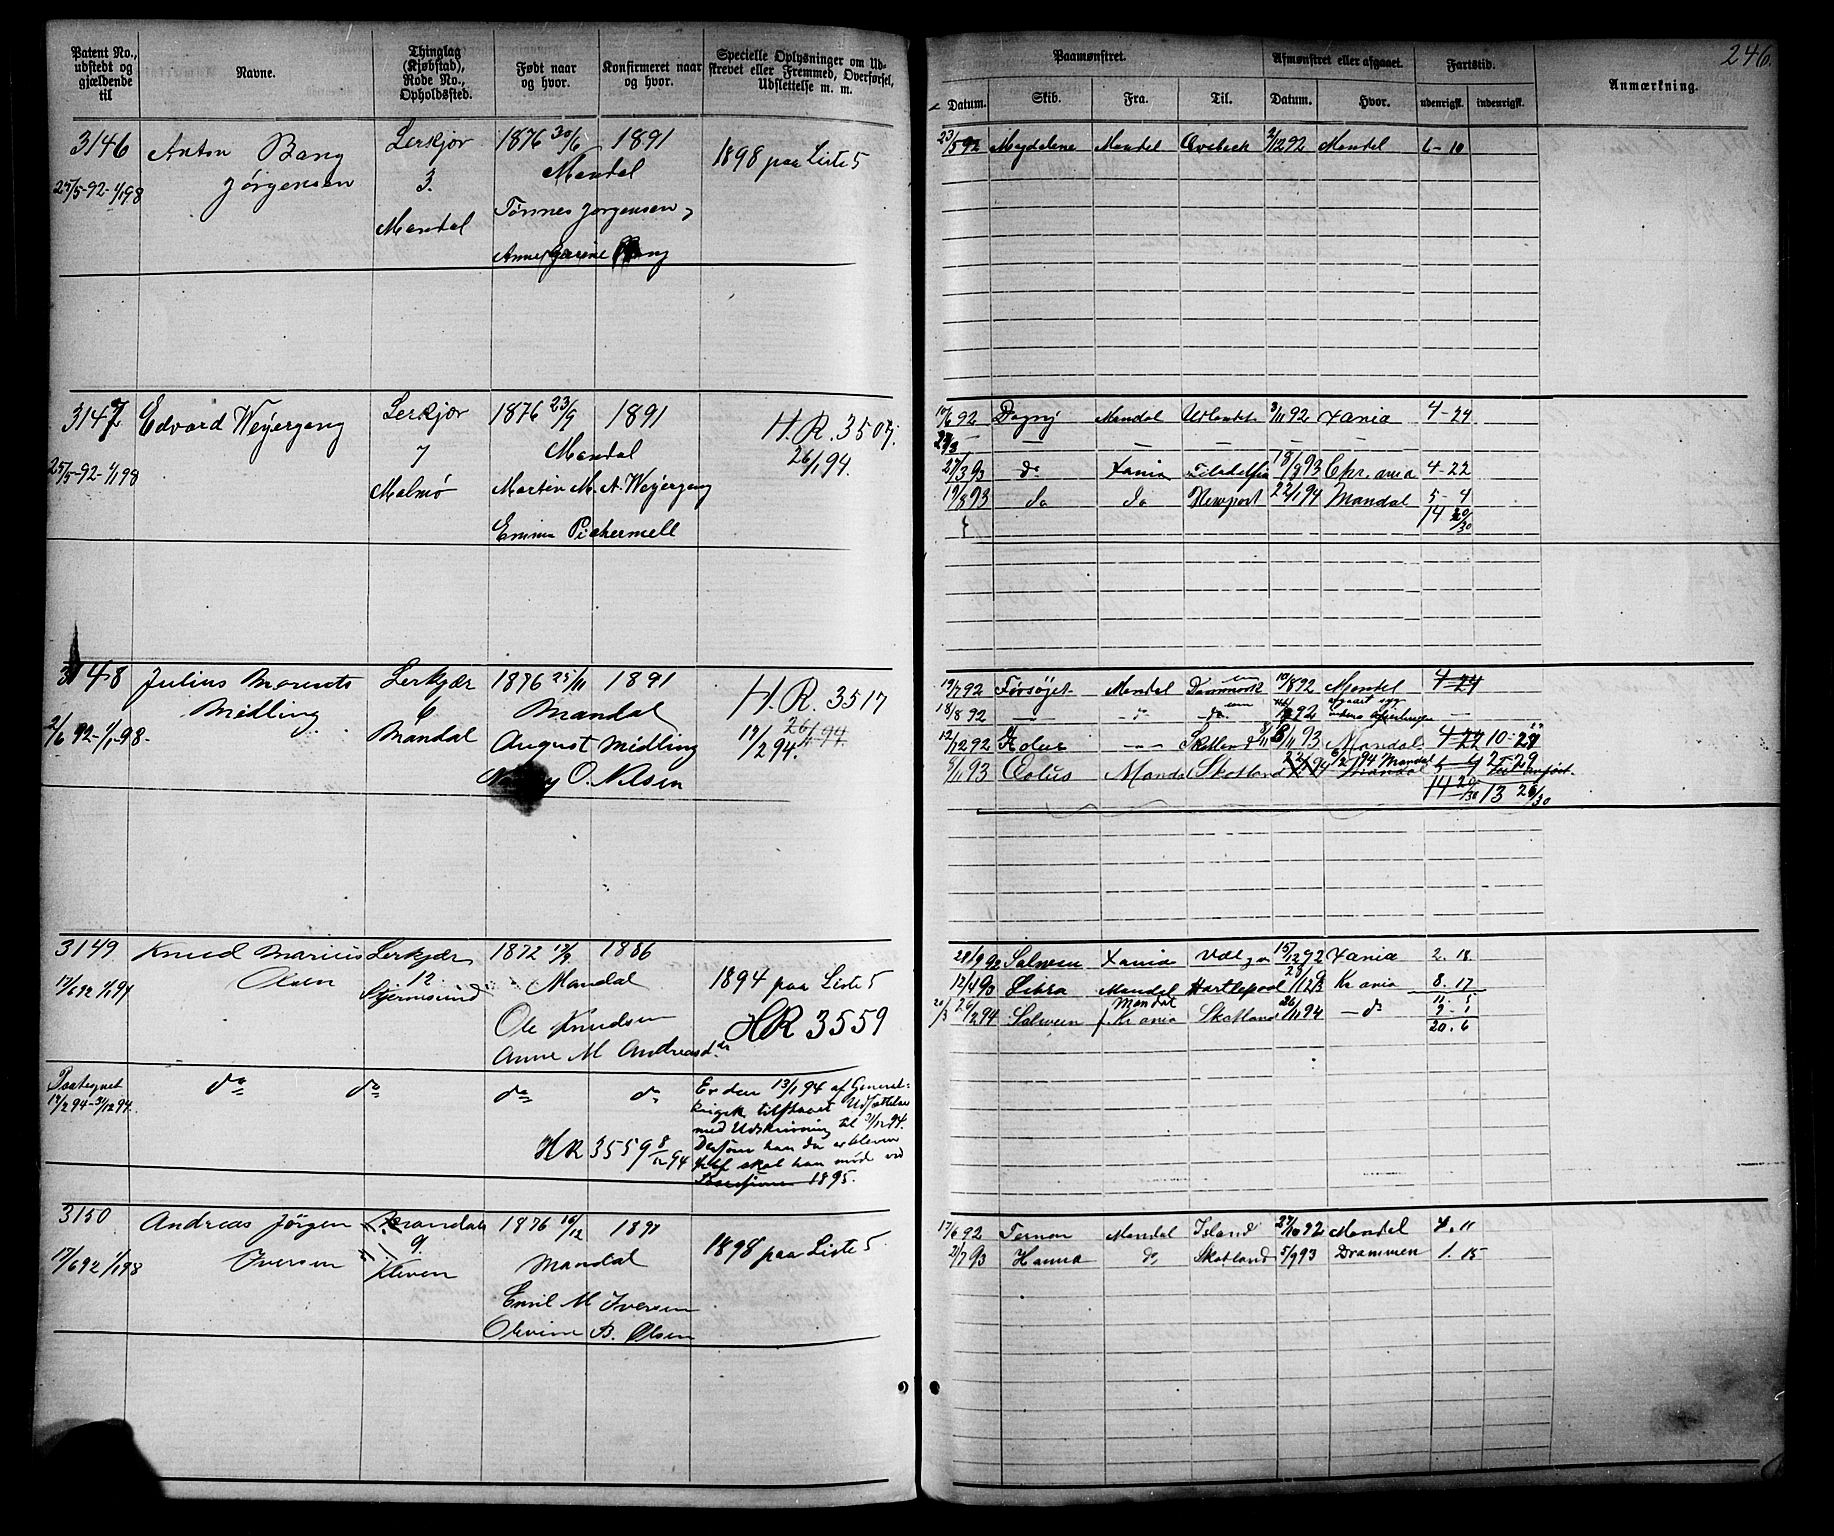 Patent No., udstedt og gjældende til
Navne.
Thinglag (Kjøbstad), Rode No., Opholdssted.
Født naar og hvor.
Konfirmeret naar og hvor.
Specielle Oplysninger om Udskrevet eller Fremmed, Overførsel, Udslettelse m. m.
Paamønstret.
Afmønstret eller afgaaet.
Fartstid.
Anmærkning.
246.
Datum.
Skib.
Fra.
Til.
Datum.
Hvor.
udenrigsk.
indenrigsk.
3146
Anton Bang
Jørgensen
25/5-92-1/1 98
Lerkjør
3.
Mandal
1876 30/6 1891
Mandal
Tønnes Jørgensen
Bang
1898 paa Liste 5
23/5 92 Magdalene Mandal 2/12 92 Mandal 6-10
3147
Edvard Weyergang
25/5-92-1/1 98
Lerkjør
7
Malmø
1876 23/9 1891
Mandal
Martin M. A. Weyergang
Emma Pichermell
H.R. 3507.
26/1 94.
92 Dagny Mandal 92 Xania 4-24
27/3 93 do Xania 18/8 93 Chr.ania 4-22
19/8 93 do do Newport 22/1 94 Mandal 5-4
14 20/30
3148
Julius
Midling
2/6 92-1/1-98.
Lerkjær
6
Mandal
1876 25/11 1891
Mandal
August Midling
O. Nilsen
H.R. 3517
17/2 94. 26/1 94.
19/7 92 Forsøjet Mandal Danmark 10/8 92 Mandal 4-24
18/8 92 — do — do 92
12/12 92 Æolus — Skotland 8/11 93 Mandal 4-22 10-27
9/11 93 Æolus Mandal Skotland 22/1 94 6/2 94 Mandal 5-4 2-29
14 20/30 13 26/30
3149
Knud Marius
Olsen
17/6 92 1/1 97
Lerkjær
12
Stjernsund
1872 1886
Mandal
Ole Knudsen
Anne M Andreasd.
1894 paa Liste 5
HR 3559
28/9 92 Salveen Xania 15/12 92 Xania 2. 18.
12/4 93 Libra Mandal Hartlepool Kr.ania 8. 17
11. 5
26/2 94 Salveen Mandal f. Kr.ania Skotland 26/11 94 — do 9. 1
20. 6
Paategnet
17/2 94-31/12 94.
do
do
do
do
Er den 13/1 94 af General-
tilstaaet Udsættelse
med Udskrivning til 31/12 94.
han da er bleven
skal han møde ved
Sessionen 1895.
HR 3559 8/12 94
3150
Andreas Jørgen
Iversen
17/6 92 1/1 98
Mandal
9.
Kleven
1876 16/12 1891
Mandal
Emil M Iversen
Olevine B. Olsen
1898 paa Liste 5
17/6 92 Ternen Mandal Island 27/10 92 Mandal 4. 11
2/7 93 Hanna do Skotland 5/9 93 Drammen 1. 15